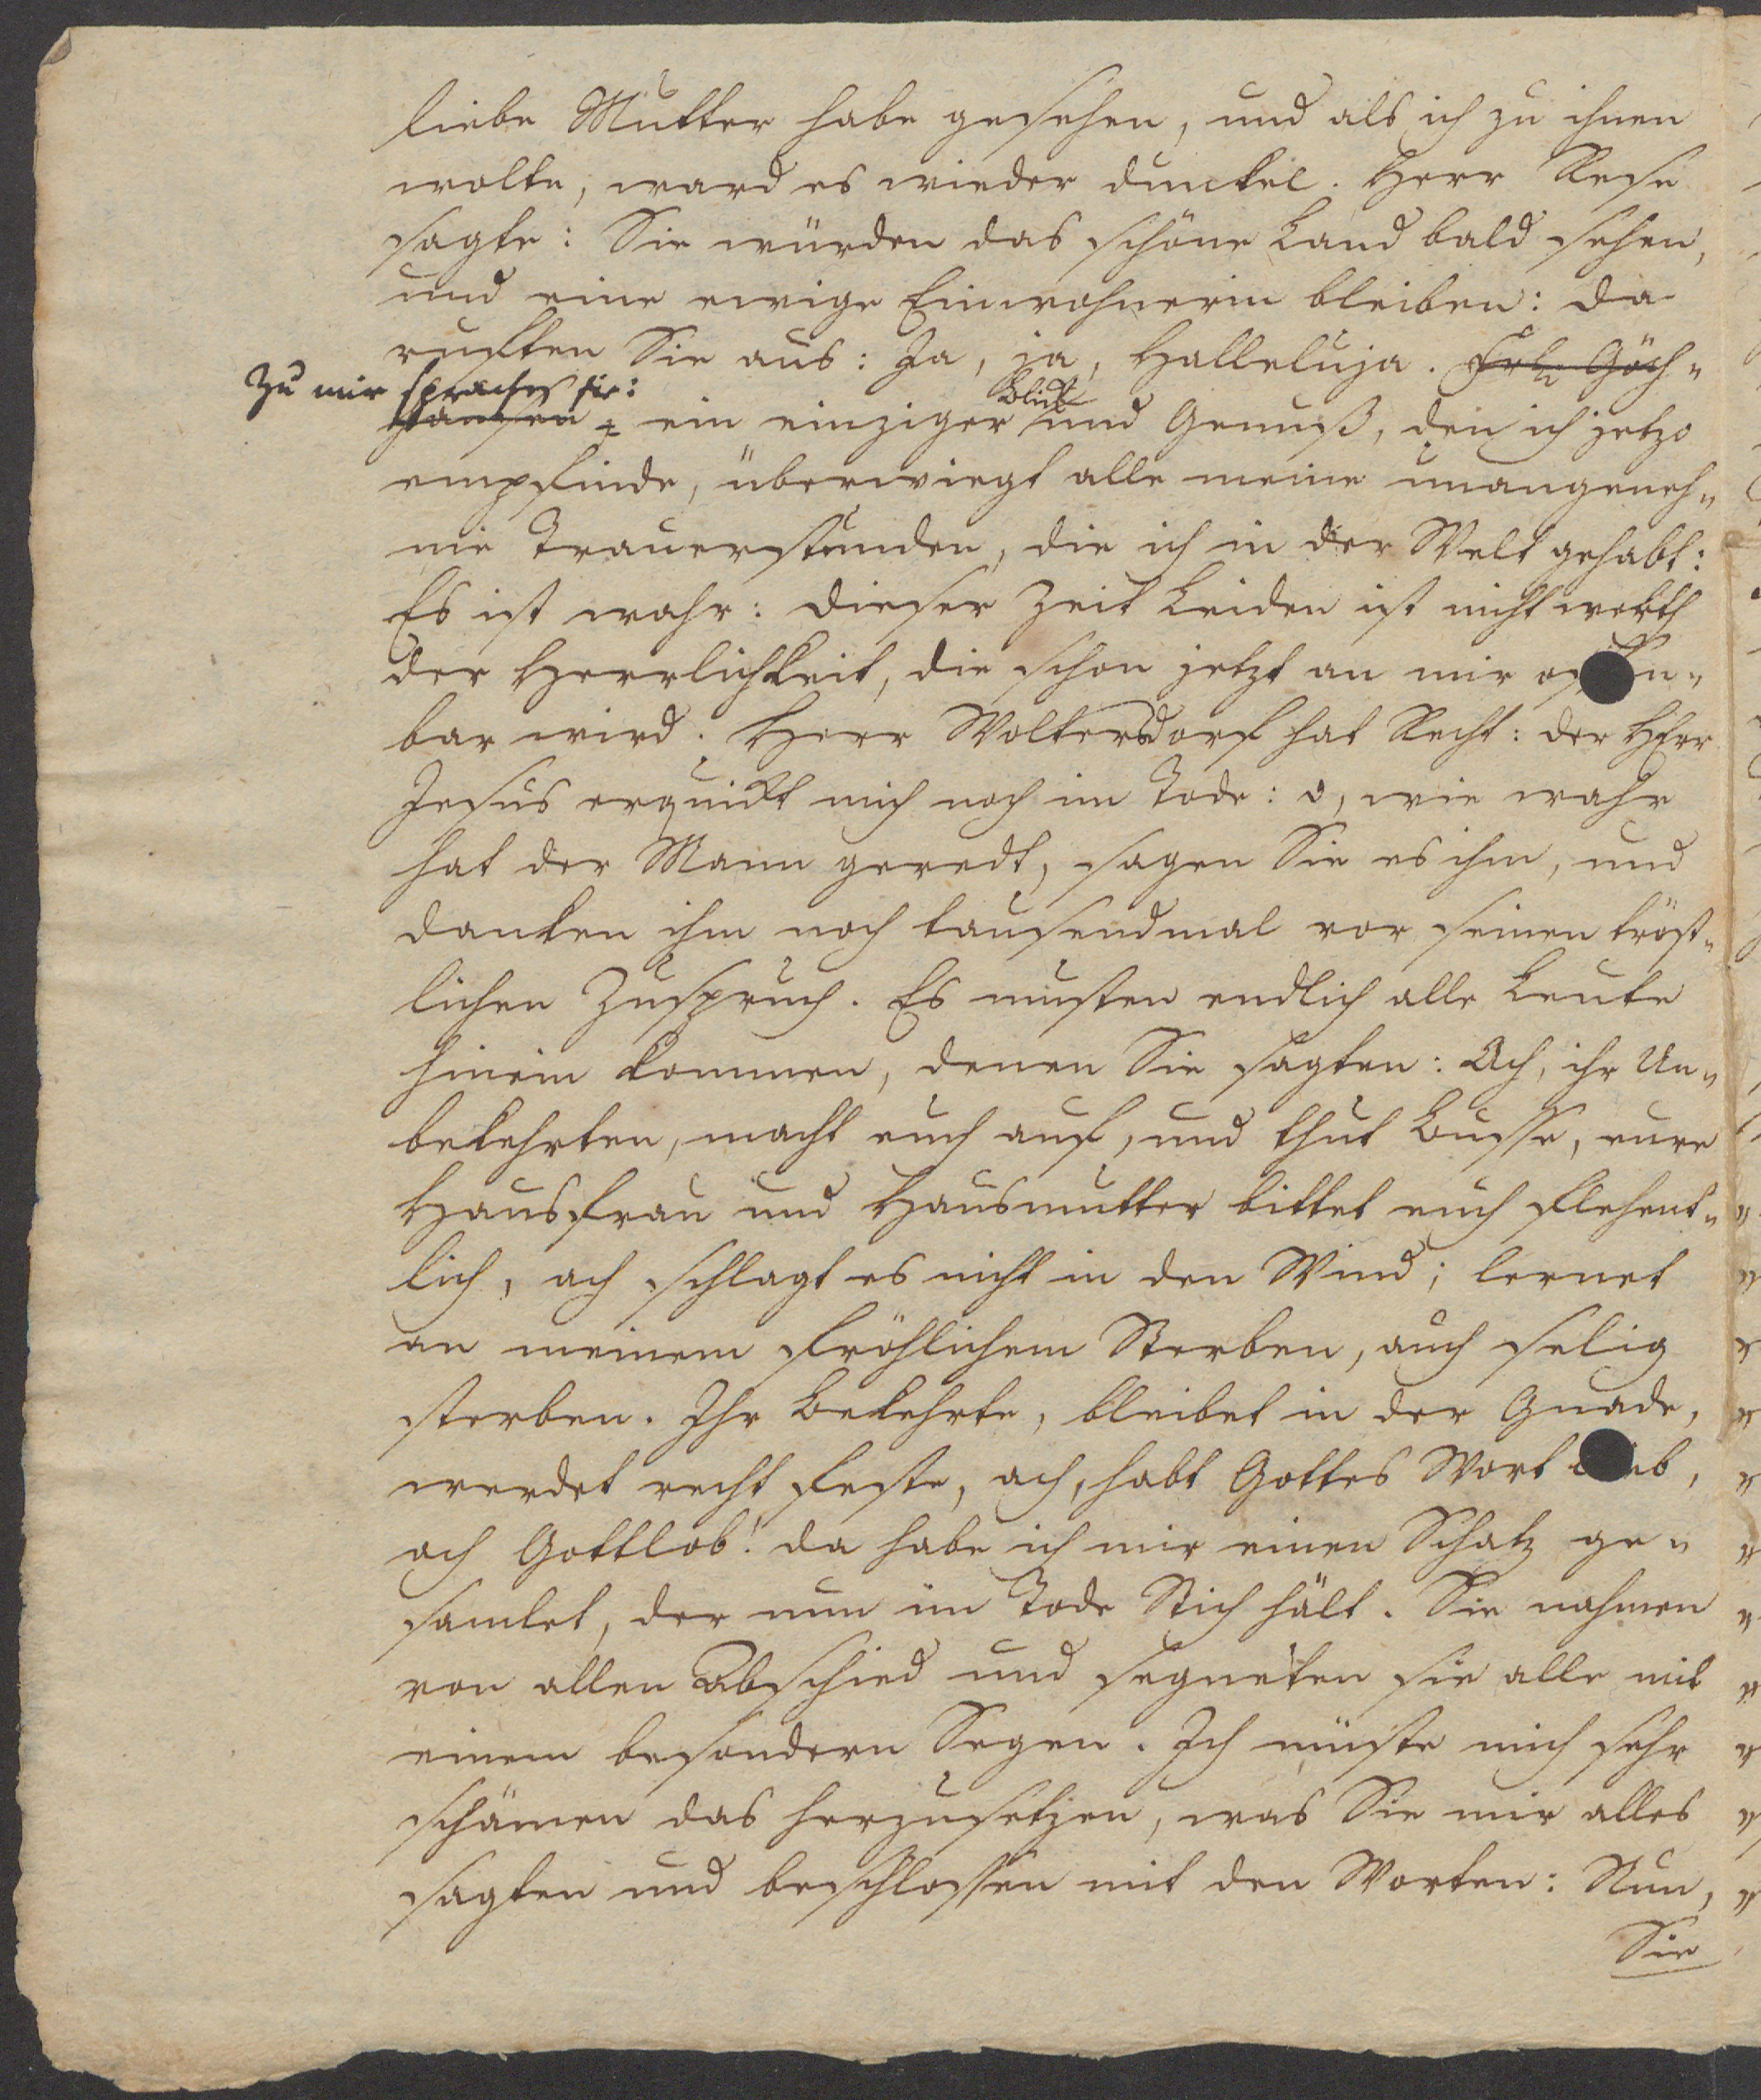 liebe Mutter habe gesehen, und als ich zu ihnen
wolte, ward es wieder dunckel. Herr Rese
sagte: Sie würden das schöne Land bald sehen,
und eine ewige Einwohnerin bleiben: da
ruften Sie aus: Ja, ja, Halleluja. Frl.
Zu mir sprachs sie:
ein einziger Blick und Genuß, den ich jetzo
empfinde, überwiegt alle meine unangeneh„
me Trauerstunden, die ich in der Welt gehabt:
Es ist wahr: dieser Zeit Leiden ist nicht werth
der Herrlichkeit, die schon jetzt an mir offen„
bar wird. Herr Woltersdorf hat Recht: der HErr
Jesus erquickt mich noch im Tode: o, wie wahr
hat der Mann geredt, sagen Sie es ihm, und
danken ihm noch tausendmal vor seinen tröst„
lichen Zuspruch. Es musten endlich alle Leute
hinein kommen, denen Sie sagten: Ach, ihr Un„
bekehrten, macht euch auf, und thut Busse, eure
Hausfrau und Hausmutter bittet euch flehent„
lich, ach schlagt es nicht in den Wind; lernet
an meinem fröhlichem Sterben, auch selig
sterben. Ihr Bekehrte, bleibet in der Gnade,
werdet recht feste, ach, habt Gottes Wort lieb,
ach Gottlob! da habe ich mir einen Schatz ge„
samlet, der nun im Tode Stich hält. Sie nahmen
von allen Abschied und segneten sie alle mit
einem besondern Segen. Ich müste mich sehr
schämen das herzusetzen, was Sie mir alles
sagten und beschlossen mit den Worten: Nun,
Sie